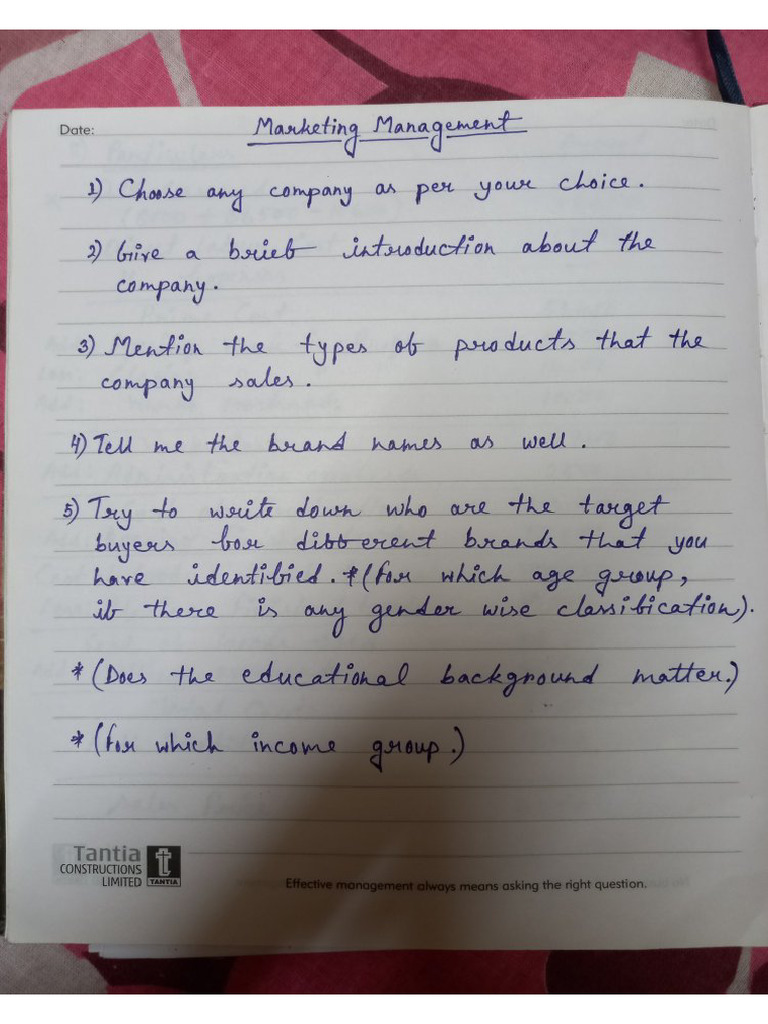 Date:
Marketing Management
1) Choose any company as per your choice.
2) Give a brief introduction about the
company.
3) Mention the types of products that the
company sales.
4) Tell me the brand names as well.
5) Try to write down who are the target
buyers for different brands that you
have identified. *(for which age group,
if there is any gender wise classification).
*(Does the educational background matter.)
*(for which income group.)
Tantia
CONSTRUCTIONS
LIMITED
TANTIA
Effective management always means asking the right question.